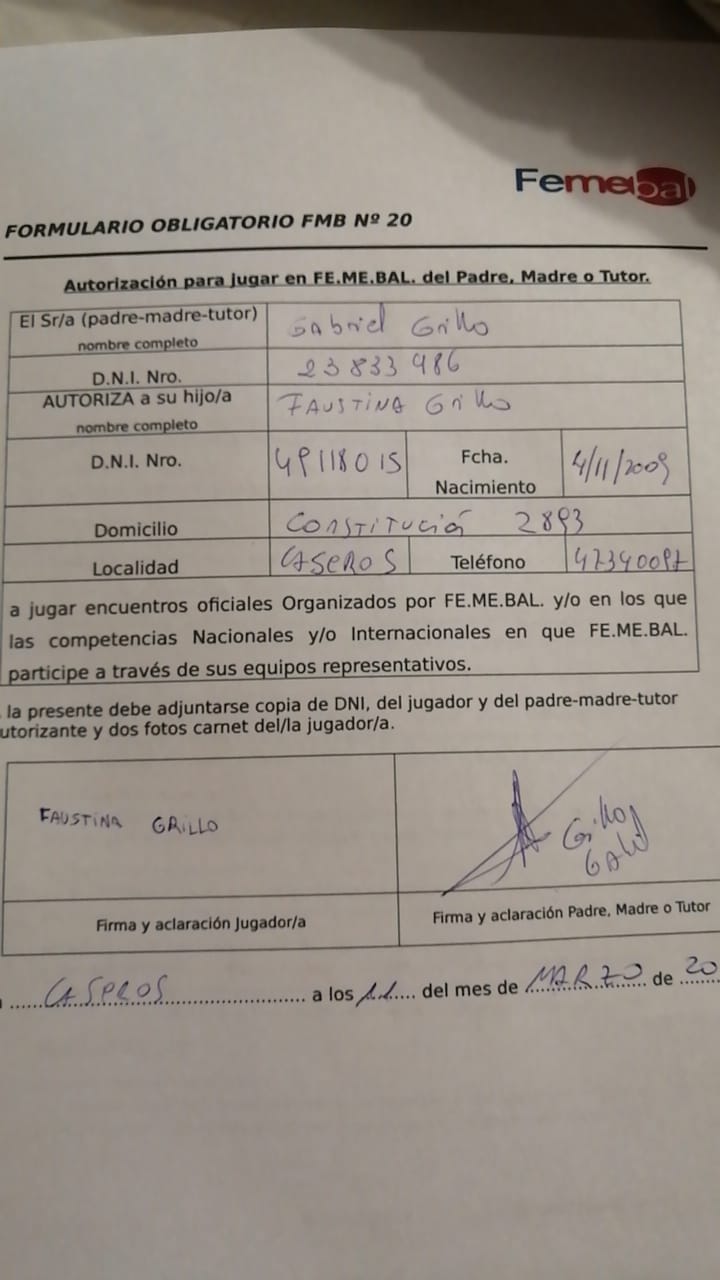 Femebal
FORMULARIO OBLIGATORIO FMB Nº 20
Autorización para jugar en FE.ME.BAL. del Padre, Madre o Tutor.
El Sr/a (padre-madre-tutor) Gabriel Grillo
nombre completo
D.N.I. Nro. 23 833 986
AUTORIZA a su hijo/a FAUSTINA Grillo
nombre completo
D.N.I. Nro. 49118015 Fcha. 4/11/2009
Nacimiento
Domicilio CONSTITUCIÓN 2893
Localidad CASEROS Teléfono 47340097
a jugar encuentros oficiales Organizados por FE.ME.BAL. y/o en los que
las competencias Nacionales y/o Internacionales en que FE.ME.BAL.
participe a través de sus equipos representativos.
la presente debe adjuntarse copia de DNI, del jugador y del padre-madre-tutor
utorizante y dos fotos carnet del/la jugador/a.
FAUSTINA GRILLO
Grillo
Gabriel
Firma y aclaración Jugador/a Firma y aclaración Padre, Madre o Tutor
CASEROS a los 11 del mes de MARZO de 20